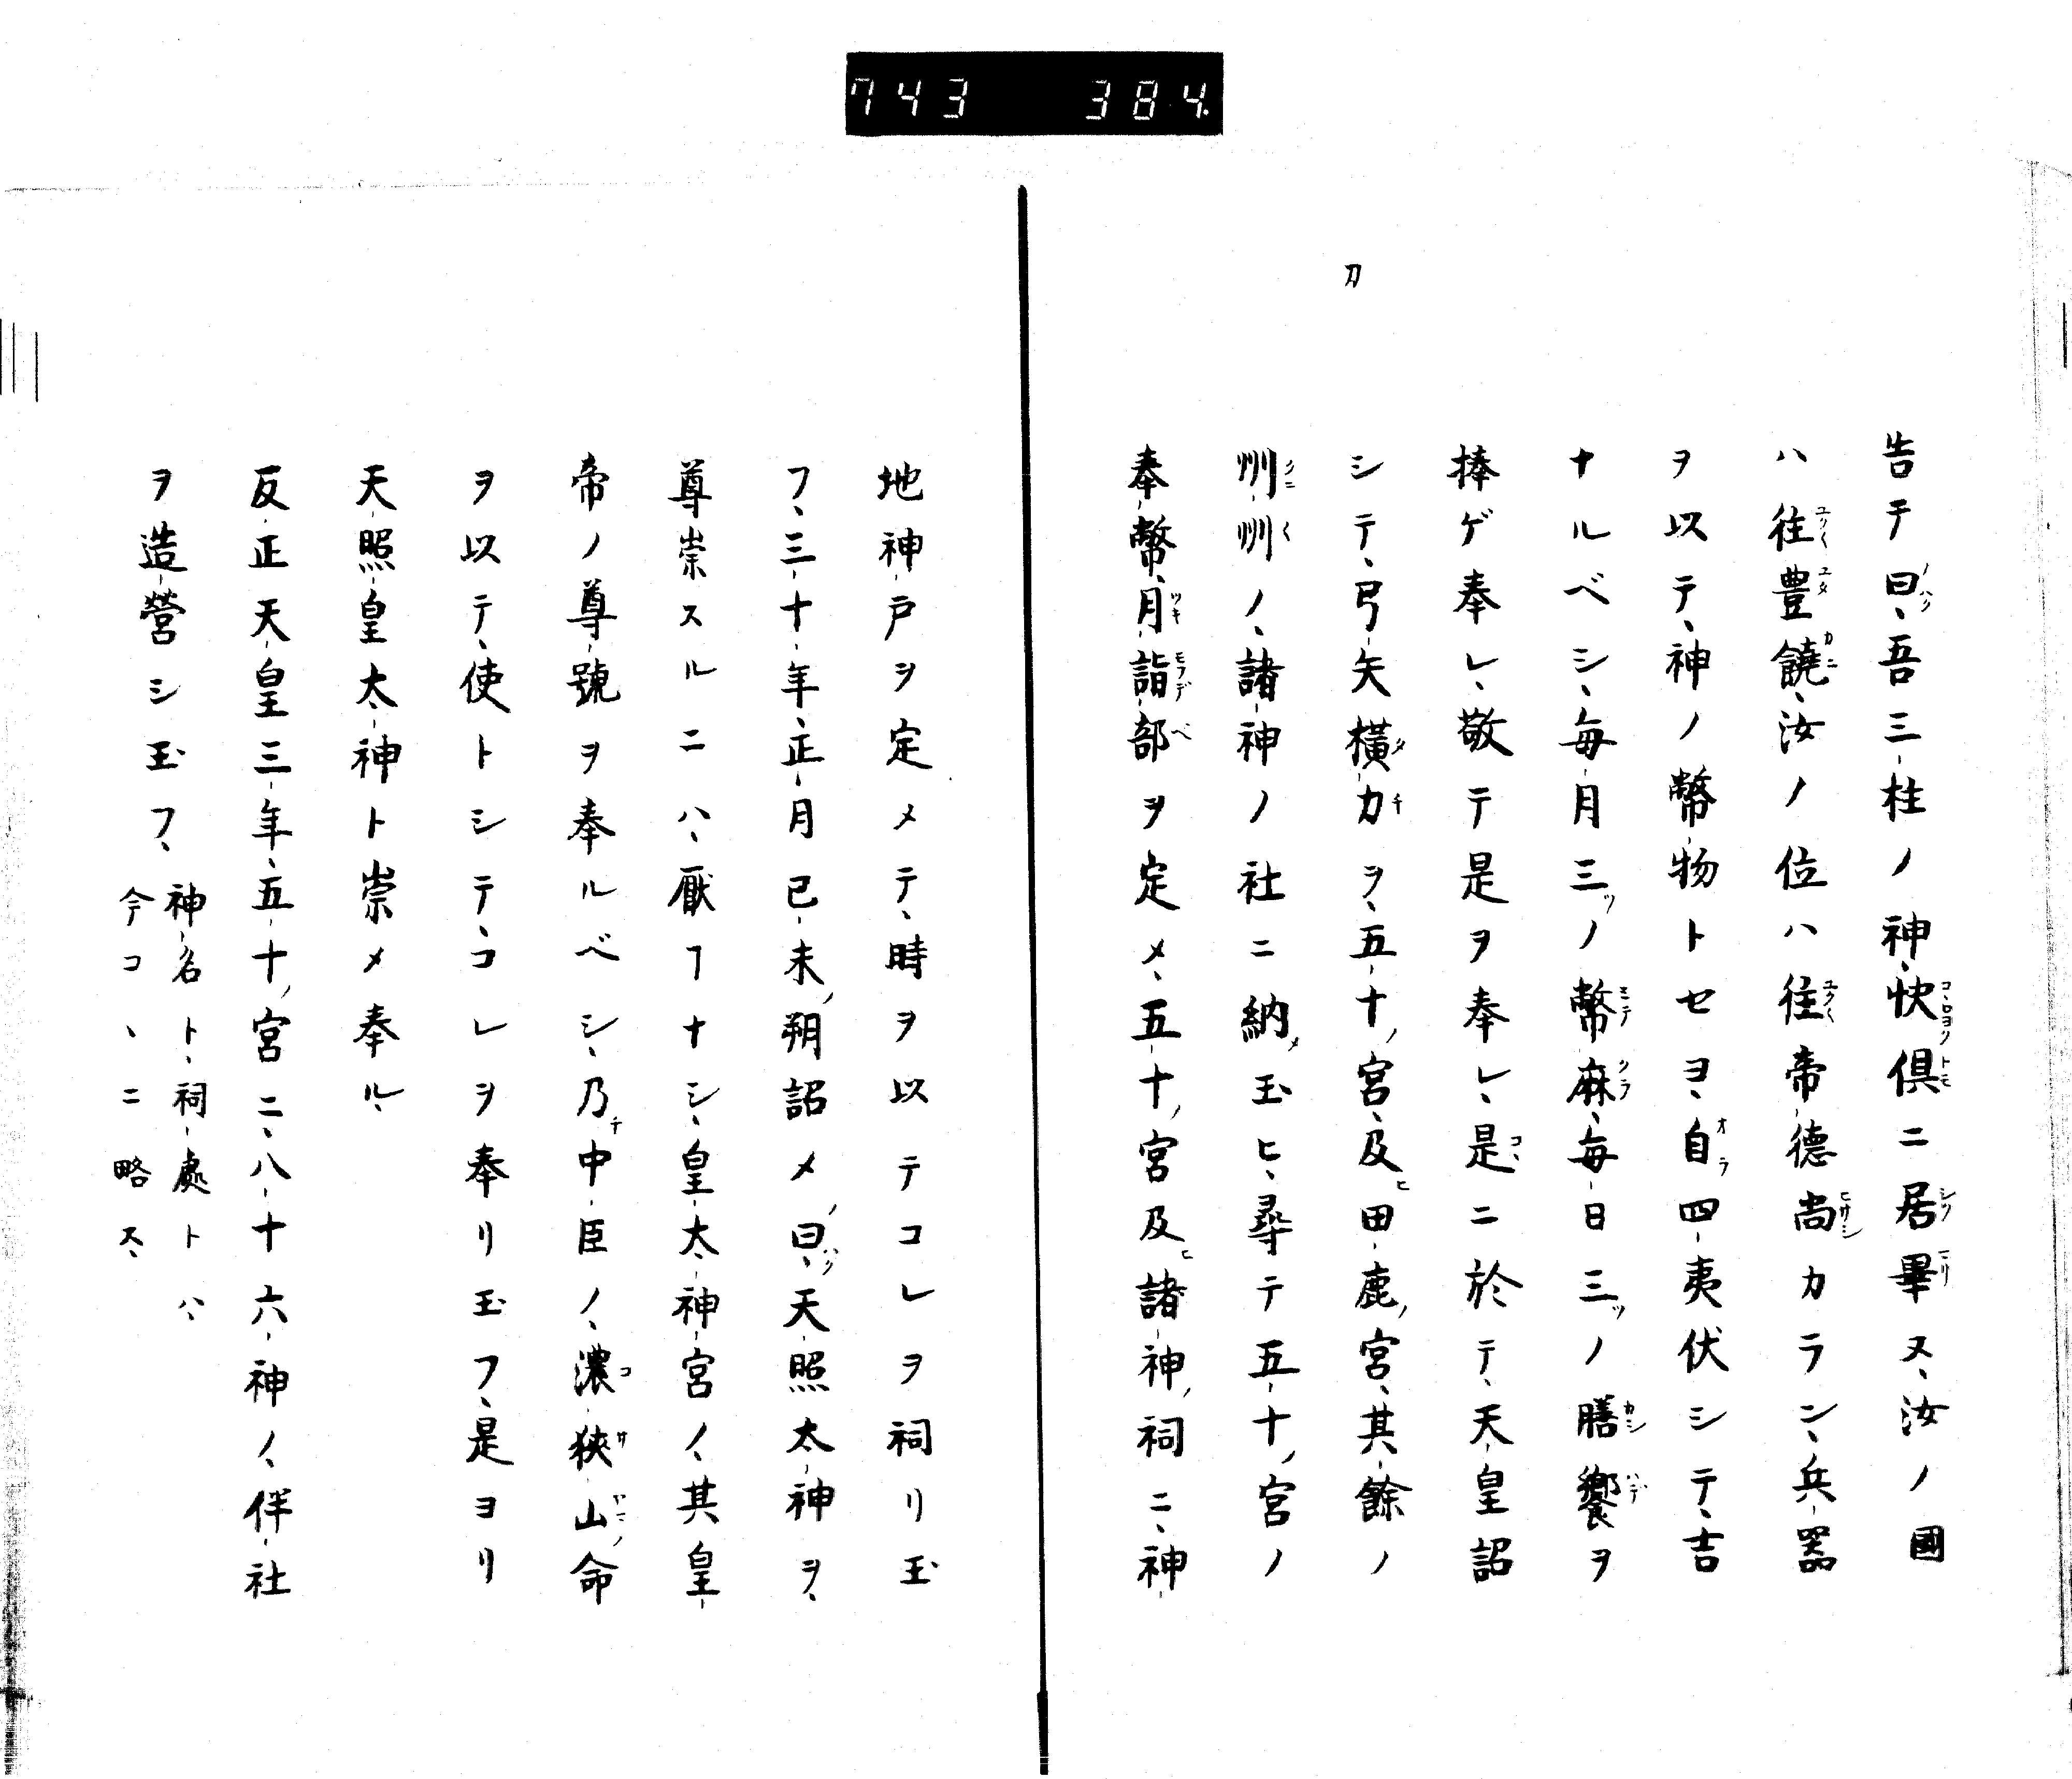 743 384.
刀
告テ曰、吾三柱ノ神、快倶ニ居畢ヌ、汝ノ國
ハ往豊饒、汝ノ位ハ往帝德尚カラン、兵器
ヲ以テ、神ノ幣物トセヨ、自四夷伏シテ、吉
ナルベシ、毎月三ッノ幣麻、毎日三ッノ膳饗ヲ
捧ゲ奉レ、敬テ是ヲ奉レ、是ニ於テ、天皇詔
シテ、弓矢横カヲ、五十ノ宮、及ヒ田鹿ノ宮、其餘ノ
州州ノ、諸神ノ社ニ納メ玉ヒ、尋テ五十ノ宮ノ
奉幣、月詣部ヲ定メ、五十ノ宮及ヒ諸神ノ祠ニ、神
地神戸ヲ定メテ、時ヲ以テコレヲ祠リ玉
フ、三十年、正月己未ノ朔詔メノ曰、天照太神ヲ、
尊崇スルニハ、厭フナシ、皇太神宮ノ、其皇
帝ノ尊號ヲ奉ルベシ、乃チ中臣ノ、濃狹山命
ヲ以テ、使トシテ、コレヲ奉リ玉フ、是ヨリ
天照皇太神ト崇メ奉ル、
反正天皇三年、五十ノ宮ニ、八十六神ノ、伴社
ヲ造營シ玉フ、神名ト、祠處トハ、
今コヽニ略ス、